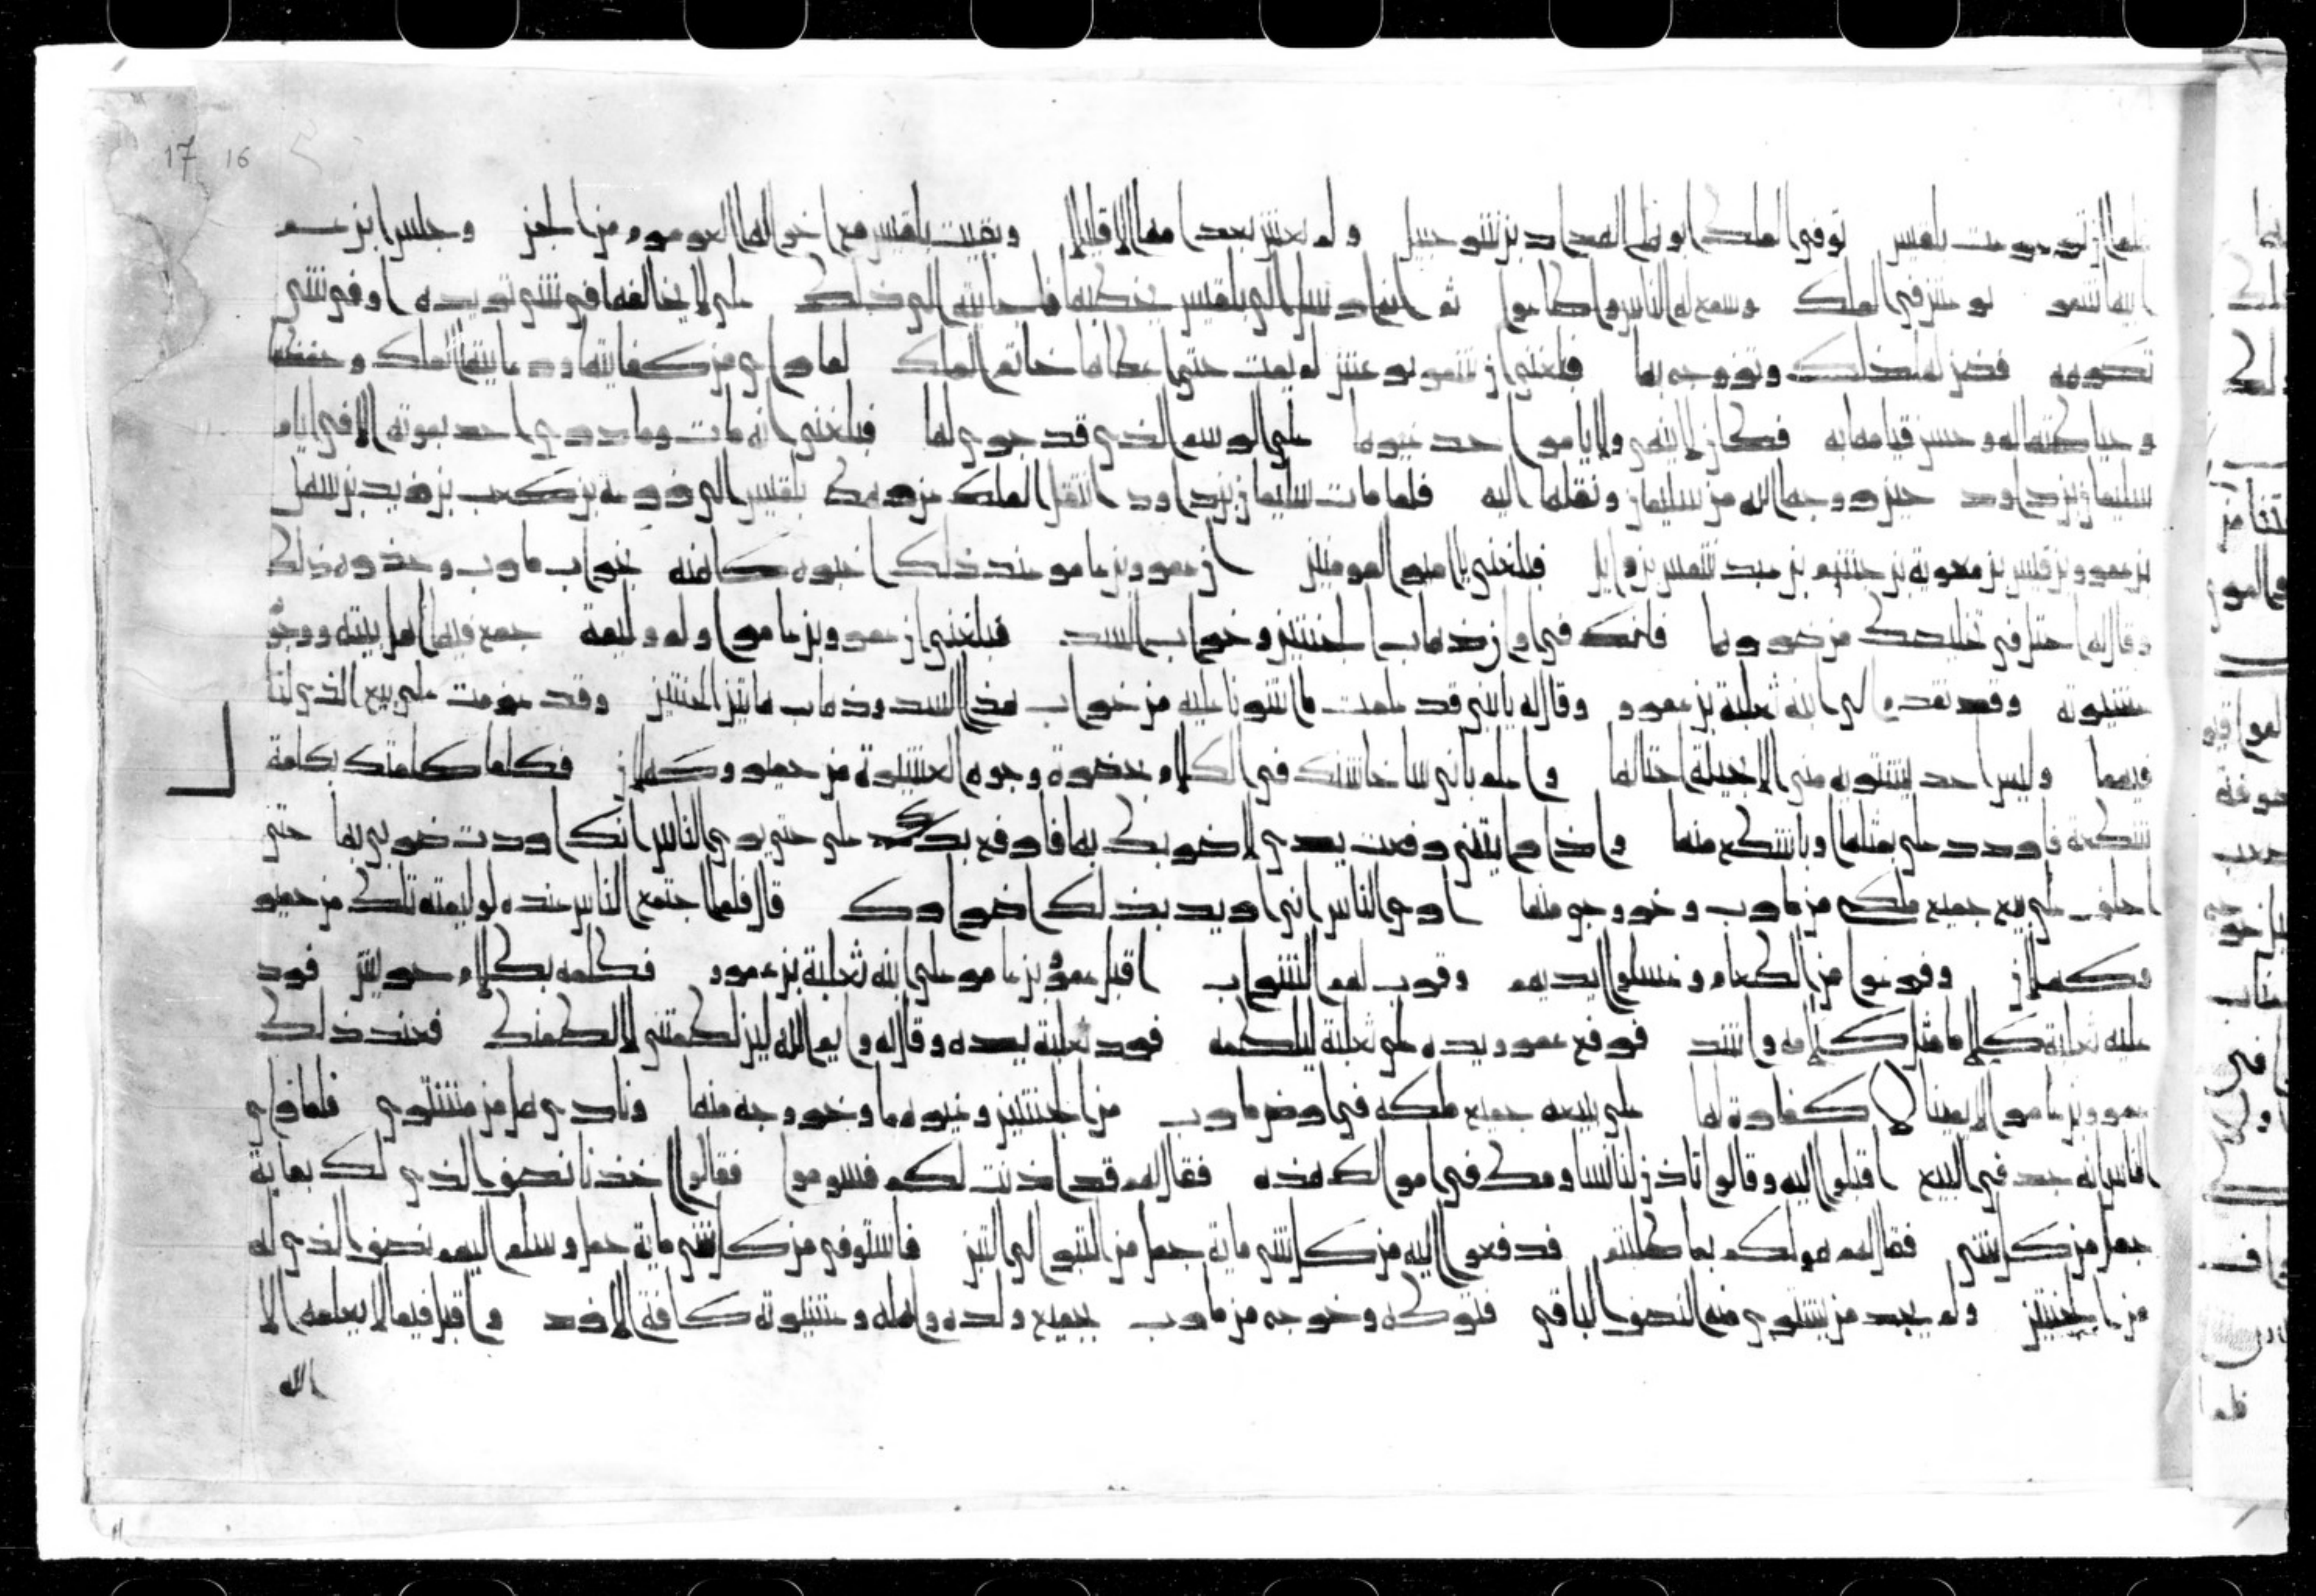 توفي الملك ابو بلقيس الهداد بن شرحبيل ولم تعش بعد امها الا قليلا وبقيت بلقيس مع اخوالها العرمرم من الجن وجلس ابن عم
ابيها شمر يرعش في الملك وسمع له الناس واطاعوا ثم انه ارسل الى بلقيس يخطبها فاجابته الى ذلك على لا يخالفها في شي تريده او في شي
تكرهه فضمن لها ذلك وتزوجه بها فبلغني ان شمر يرعش لم يمت حتى اعطاها خاتم الملك لما راى من كفايتها ورعايتها الملك وحفظها
وحياطتها له وحسن قيامها به فكان لا ينهى ولا يامر احد غيرها على الرسم الذي قد جرى لها فبلغني انه مات وما دري احد بموته الا في ايام
سليمان بن داود حين زوجها الله من سليمان ونقلها اليه فلما مات سليمان بن داود انتقل الملك من رهط بلقيس الى زرعة بن كعب بن زيد بن سهل
بن عمرو بن قيس بن معوية بن جشم بن عبد شمس بن وايل فبلغني يا امير المومنين ان عمرو بن عامر عند ذلك اخبره كاهنه بخراب مارب وحذره ذلك
وقال له احتل في تخليصك من ضررها فانك في اوان ذهاب الجنتين وخراب السد فبلغني ان عمرو بن عامر اولم وليمة جمع فيها اهل بيته ووجوه
عشيرته وقد تقدم الى ابنه ثعلبة بن عمرو وقال له يا بني قد علمت ما اشرنا عليه من خراب هذا السد وذهاب هاتين الجنتين وقد عزمت على بيع الذي لنا
فيهما وليس احد يشتريه مني الا بحيلة احتالها واعلم باني ساخاشنك في الكلام بحضرة وجوه العشيرة من حمير وكهلان فكلما كلمتك بكلمة
شكعة فاردد علي مثلها او باشكع منها واذا رايتني رفعت يدي لاضربك بها فارفع يدك علي حتى يرى الناس انك اردت ضربي بها حتى
احلف على بيع جميع ملكي من مارب وخروجي منها ارى الناس اني اريد بذلك اضرارك قال فلما اجتمع الناس عنده لوليمته تلك من حمير
وكهلان وفرغوا من الطعام وغسلوا ايديهم وقرب لهم الشراب اقبل عمرو بن عامر على ابنه ثعلبة بن عمرو فكلمه بكلام حريش فرد
عليه ثعلبة كلاما مثل كلامه واشد فرفع عمرو يده على ثعلبة ليلطمه فرد ثعلبة يده وقال له وايم الله لين لطمتني لالطمنك فعند ذلك
عمرو بن عامر الا يمينا لا كفارة لها على بيعه جميع ملكه في ارض مارب من الجنتين وغيرهما وخروجه منها ونادى هل من مشتري فلما راى
الناس انه جد في البيع اقبلوا اليه وقالوا تاذن لنا نساومك في اموالك هذه فقال لهم قد اذنت لكم فسوموا فقالوا خذ نا نصف الذي لك بماية
جمل من كل شي فقال لهم هو لكم بما طلبتم فدفعوا اليه من كل شي ماية جمل من البر الى التبن فاستوفى من كل شي ماية جمل وسلم اليهم نصف الذي له
من الجنتين ولم يجد من يشتري منه النصف الباقي فتركه وخرج من مارب بجميع ولده واهله وعشيرته كافة الازد واقبل فيما لا يعلمه الا
الله
17 16